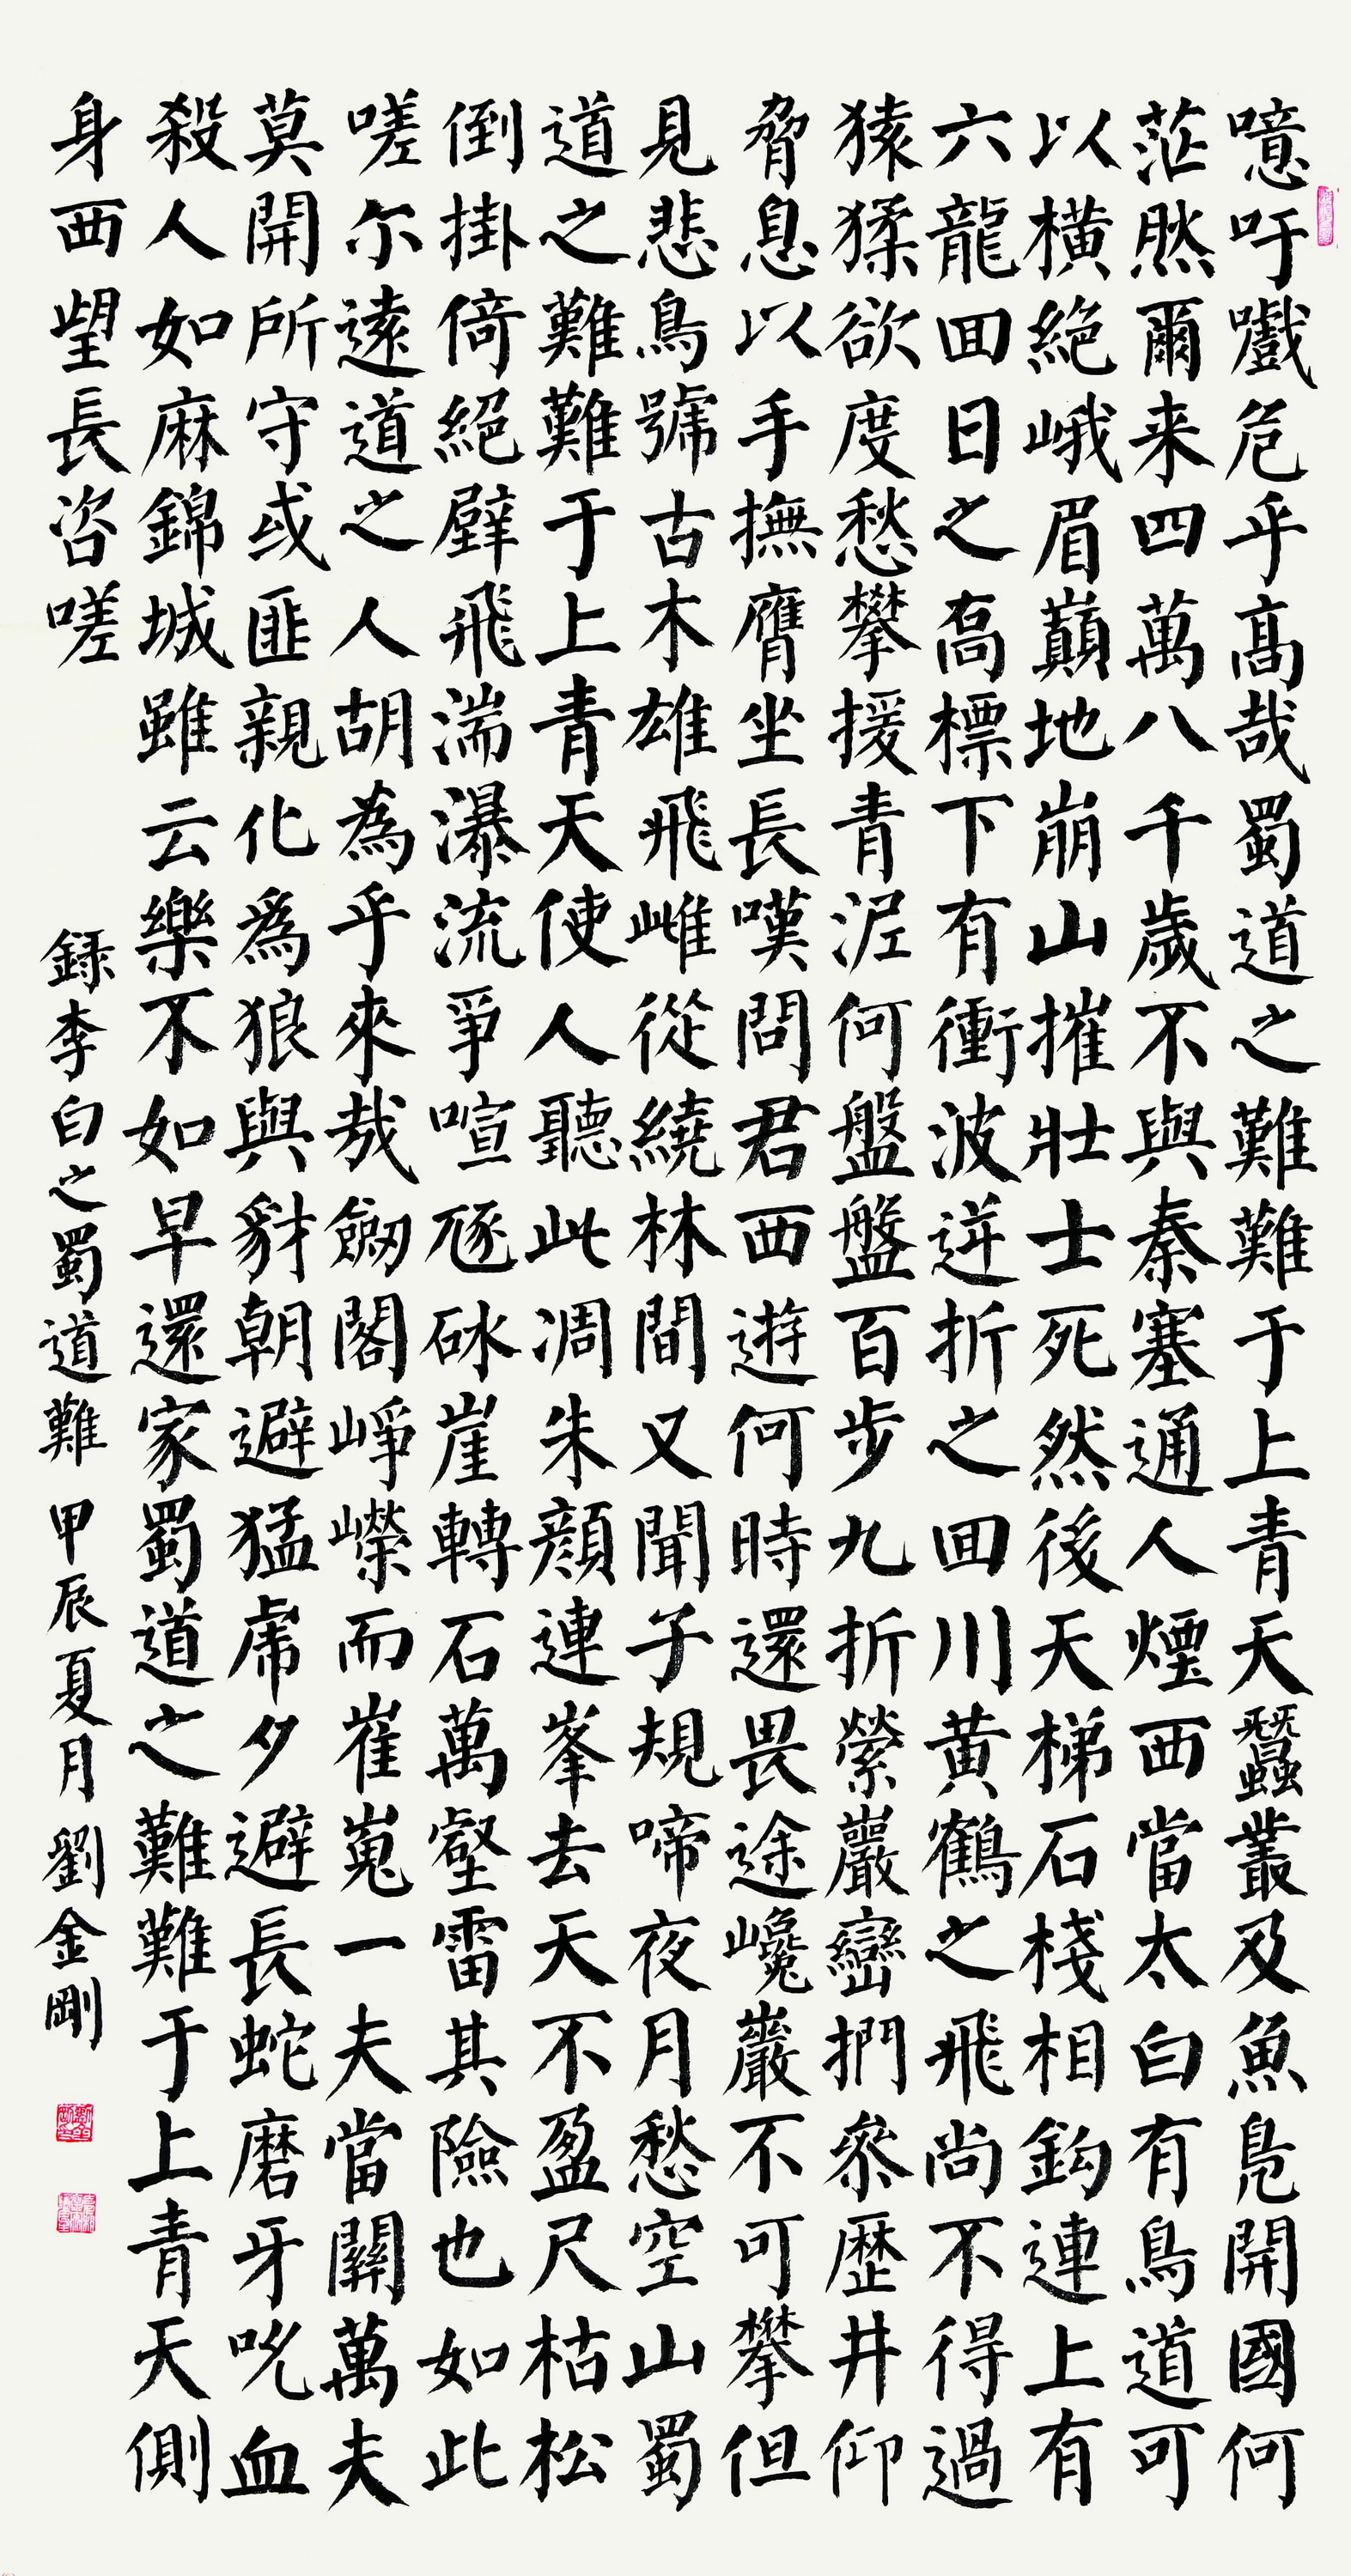 噫吁嚱危乎髙哉蜀道之難難于上青天蠶叢及魚鳧開國何
茫然爾来四萬八千歲不與秦塞通人煙西當太白有鳥道可
以橫絶峨眉巔地崩山摧壯士死然後天梯石棧相鈎連上有
六龍回日之高標下有衝波逆折之回川黃鶴之飛尚不得過
猿猱欲度愁攀援青泥何盤盤百步九折縈巖巒捫參歷井仰
脅息以手撫膺坐長嘆問君西遊何時還畏途巉巖不可攀但
見悲鳥號古木雄飛雌從繞林間又聞子規啼夜月愁空山蜀
道之難難于上青天使人聽此凋朱顏連峯去天不盈尺枯松
倒掛倚絕壁飛湍瀑流爭喧豗砯崖轉石萬壑雷其險也如此
嗟尔遠道之人胡為乎來哉劒閣崢嶸而崔嵬一夫當關萬夫
莫開所守或匪親化爲狼與豺朝避猛虎夕避長蛇磨牙吮血
殺人如麻錦城雖云樂不如早還家蜀道之難難于上青天側
身西望長咨嗟
錄李白之蜀道難 甲辰夏月 劉金剛